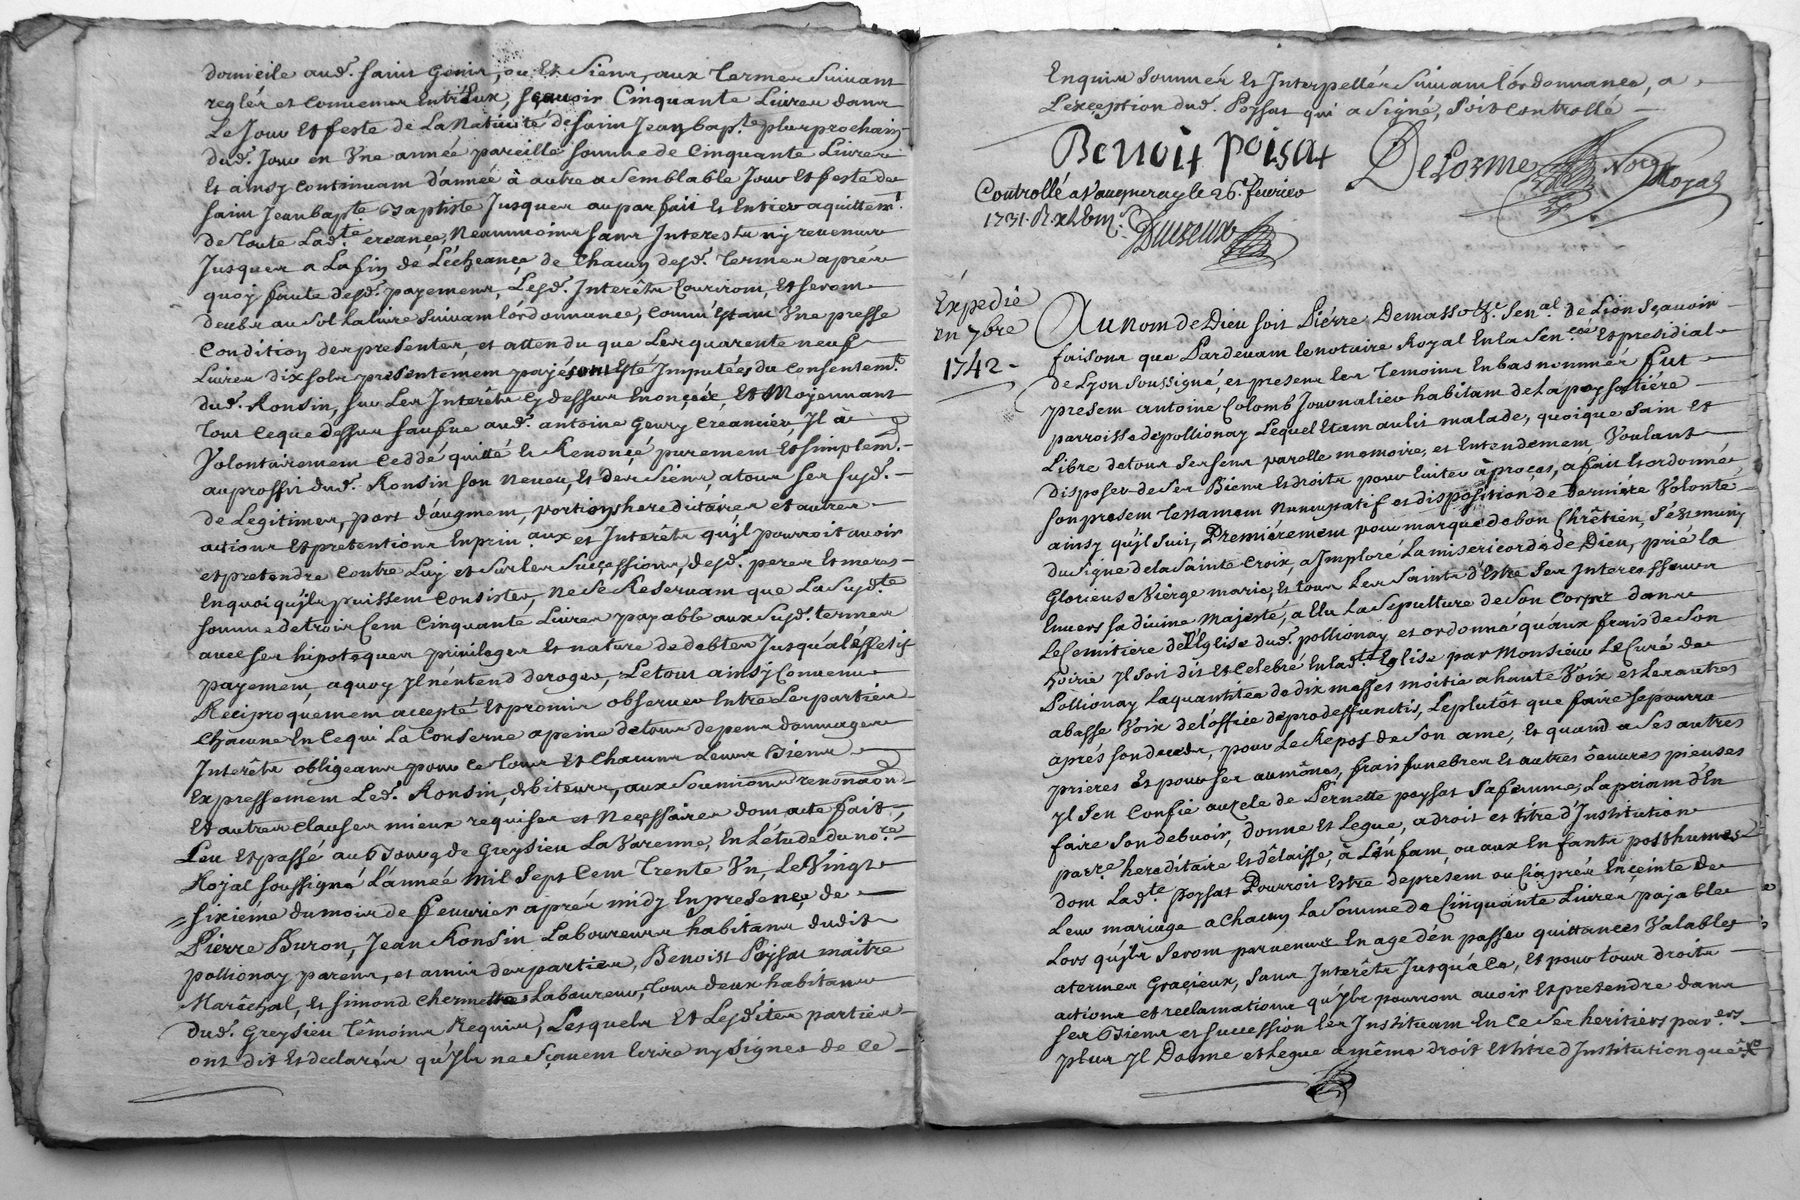 domicile aud. saint Genis, ou Les Siens, aux Termes Suivant
reglés et Convenus Entr'Eux, sçauoir Cinquante Liures dans
Le Jour Et feste de La Natiuité de saint Jean bap.te plus prochain
dud. Jour en Vne année pareille somme de Cinquante Liures
Et ainsy continuant d'année à autre a semblable Jour Et feste de
saint Jean bapte Baptiste Jusques au parfait Et Entier aquittemt.
de Toute Lad.te creance, Neanmoins sans Interests ny reuenus
Jusques a La fin de L'écheance de Chacun desd. Termes aprés
quoy faute desd. payemens, Lesd. Interêts Courront, Et seront
deubs au sol La liure suiuant l'ordonnance, comm' Estant Vne presse
Condition des presentes, et attendu que Les quarante neuf
Liures dix sols présentement payés sont Esté Imputées du Consentemt.
dud. Ronsin, sur Les Interêts Cy dessus Enonçés, Et Moyennant
Tout Ceque dessus saufue aud. antoine Geury Creancier, Jl à
Volontairement Ceddé quitté Et Renonçé purement Et simplemt.
au proffit dud. Ronsin son neueu, Et des Siens, a tous ses susd.
de Legitimes, part d'augment, portions hereditaires et autres
actions Et pretentions En prin.aux et Interêts qu'jl pourroit auoir
et pretendre Contre Luy et sur les Successions, desd. peres Et meres
En quoi qu'jls puissent Consister, Ne Se Reseruant que La Susd.te
somme de trois Cent Cinquante Liures payable aux Susd. termes
auec ses hipoteques priuileges Et nature de debtes Jusqu'à l'effetif
payement a quoy Jl n'entend deroger, Le tout ainsy Conuenu
Reciproquement accepté Et promis obseruer Entre Les parties
Chacune En Ce qui La Conserne a peine de tous depens dommages
Interêts obligeans pour Ce Tous Et Chacuns Leurs Biens
Expressement Led. Ronsin, debiteur, aux Soumions renonaons
Et autres Clauses mieux requises et Necessaires dont acte fait,
Leu Et passé au Bourg de Greysieu La Varenne, En L'étude du no.re
Rojal soussigné L'année Mil Sept Cent Trente Vn, Le Vingt
sixiéme du mois de feurier aprés midy En presence de
Pierre Buron, Jean Ronsin Laboureurs habitans dudit
pollionay parens, et amis des parties, Benoist Poysat maitre
Marêchal, Et simond Chermettes Laboureur, Tous deux habitans
dud. Greysieu Têmoins Requis, Lesquels Et Lesdites parties
ont dit Et declarés qu'Jls ne Sçauent Ecrire ny Signer de Ce
Enquis Sommés Et Interpellés Suiuant l'ordonnance, a
L'exception dud. Poysat qui a Signé, Soit Controllé
Benoit Poisat Delorme Nore Royal
Controllé a Vaugneray le 26. feurier
1731.
Expedié
en 7bre
1742
Au nom de Dieu soit Piérre Demasso &c. Sen.al de Lion Sçauoir
faisons que Pardeuant le notaire Royal En la Sen.cée Et presidial
de Lyon soussigné, et presens Les Temoins En bas nommés fut
present antoine Colomb Journalier habitant de La poysatiére
parroisse de pollionay Lequel Etant au lit malade, quoique Sain Et
Libre de tous Ses sens parolle memoire, et Entendement Voulant
disposer de Ses Biens Et droits pour Euiter à proçes, a fait Et ordonné
son present Testament Nuncupatif et disposition de derniére Volonté
ainsy qu'jl suit, Premiérement pour marque de bon Chrêtien, S'est muny
du Signe de la Sainte Croix, a Imploré La misericorde de Dieu, prié la
Glorieuse Viérge marie, Et tous Les Saints d'Estre Ses Intercesseurs
Enuers Sa diuine Majesté, a Elu La Sepulture de Son Corps dans
Le Cemitiére de l'Eglise dud. pollionay et ordonne qu'aux frais de Son
hoirie Jl soit dit Et Celebré En lad.te Eglise par Monsieur Le Curé de
Pollionay La quantitee de dix messes moitié a haute Voix et Les autres
a basse Voix de l'office de pro deffunctis, Le plutôt que faire Se pourra
aprés son decedes, pour Le Repos de Son ame, Et quand a Ses autres
prieres Et pour Ses aumônes, frais funebres Et autres oeuures pieuses
Jl S'en Confie au zele de Pernette poysat Sa femme, La priant d'En
faire Son debuoir, donne Et Legue, a droit et titre d'Institution
par.re hereditaire Et delaisse, à L'enfant, ou aux Enfants posthumes
dont Lad.te Poysat Pourroit Estre de present ou Ci aprés Enceinte de
Leur mariage a Chacun La Somme de Cinquante Liures payable
Lors qu'jls Seront paruenus En age d'en passer quittances Valables
a termes Graçieux, Sans Interêts Jusqu'à Ce, Et pour tous droits
actions et reclamations qu'Jls pourront auoir Et pretendre dans
Ses Biens et succession Les Instituant En Ce Ses heritiers par.ers
plus Jl Donne et Legue a même droit Et titre d'Institution que